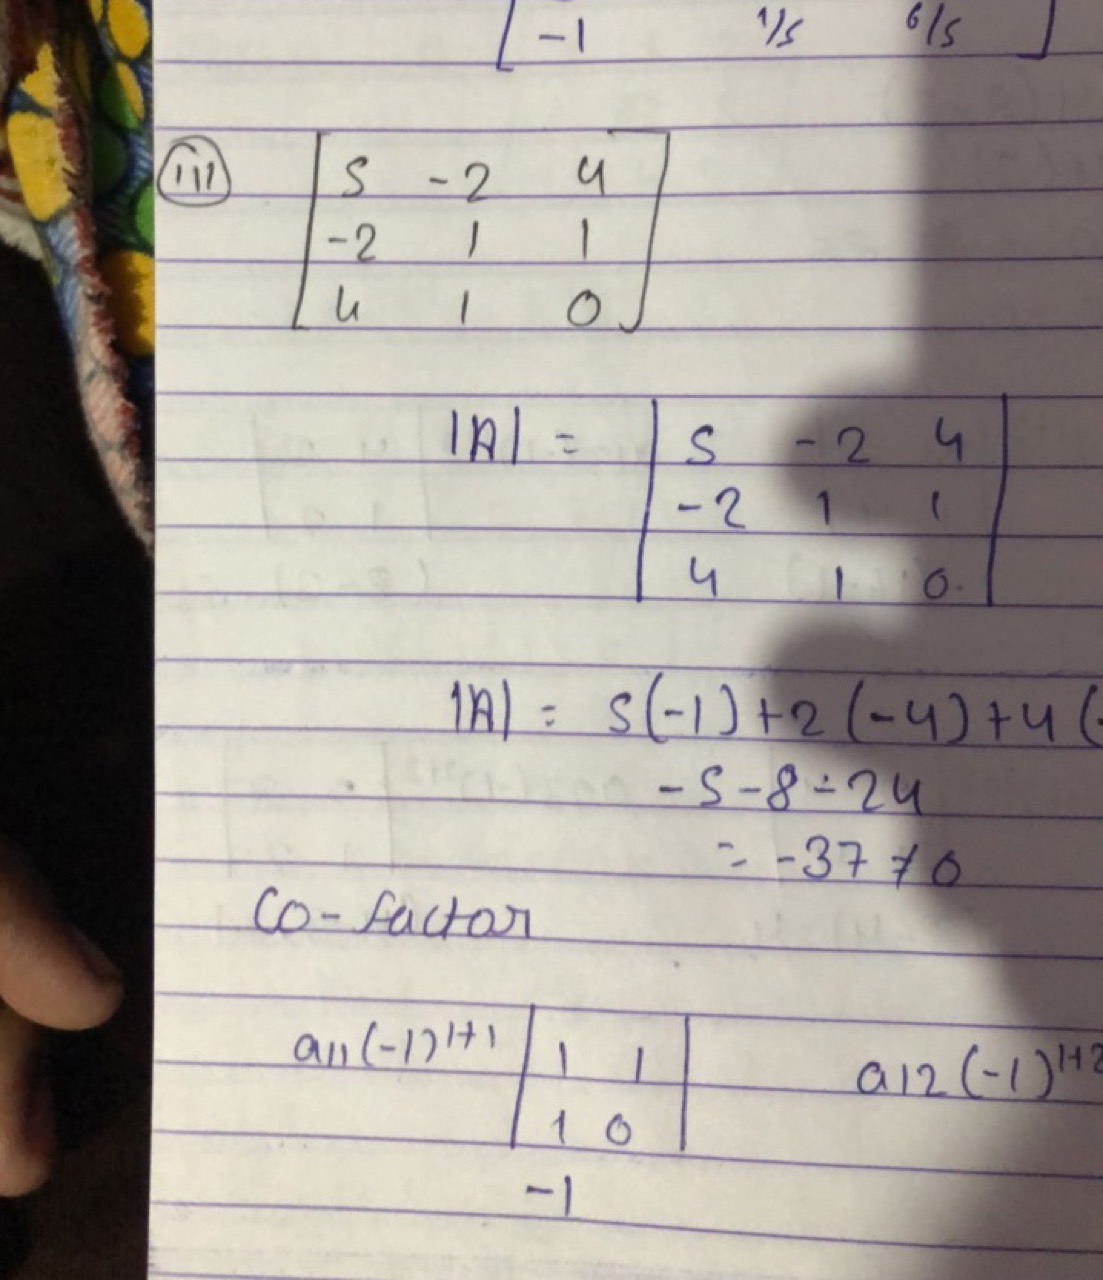 -1 1/5 6/5
(iii) 5 -2 4
-2 1 1
4 1 0
|A| = 5 -2 4
-2 1 1
4 1 0
|A| = 5(-1)+2(-4)+4(-
-5-8-24
= -37 ≠ 0
Co-factor
a11(-1)^1+1 1 1 a12(-1)^1+2
1 0
-1